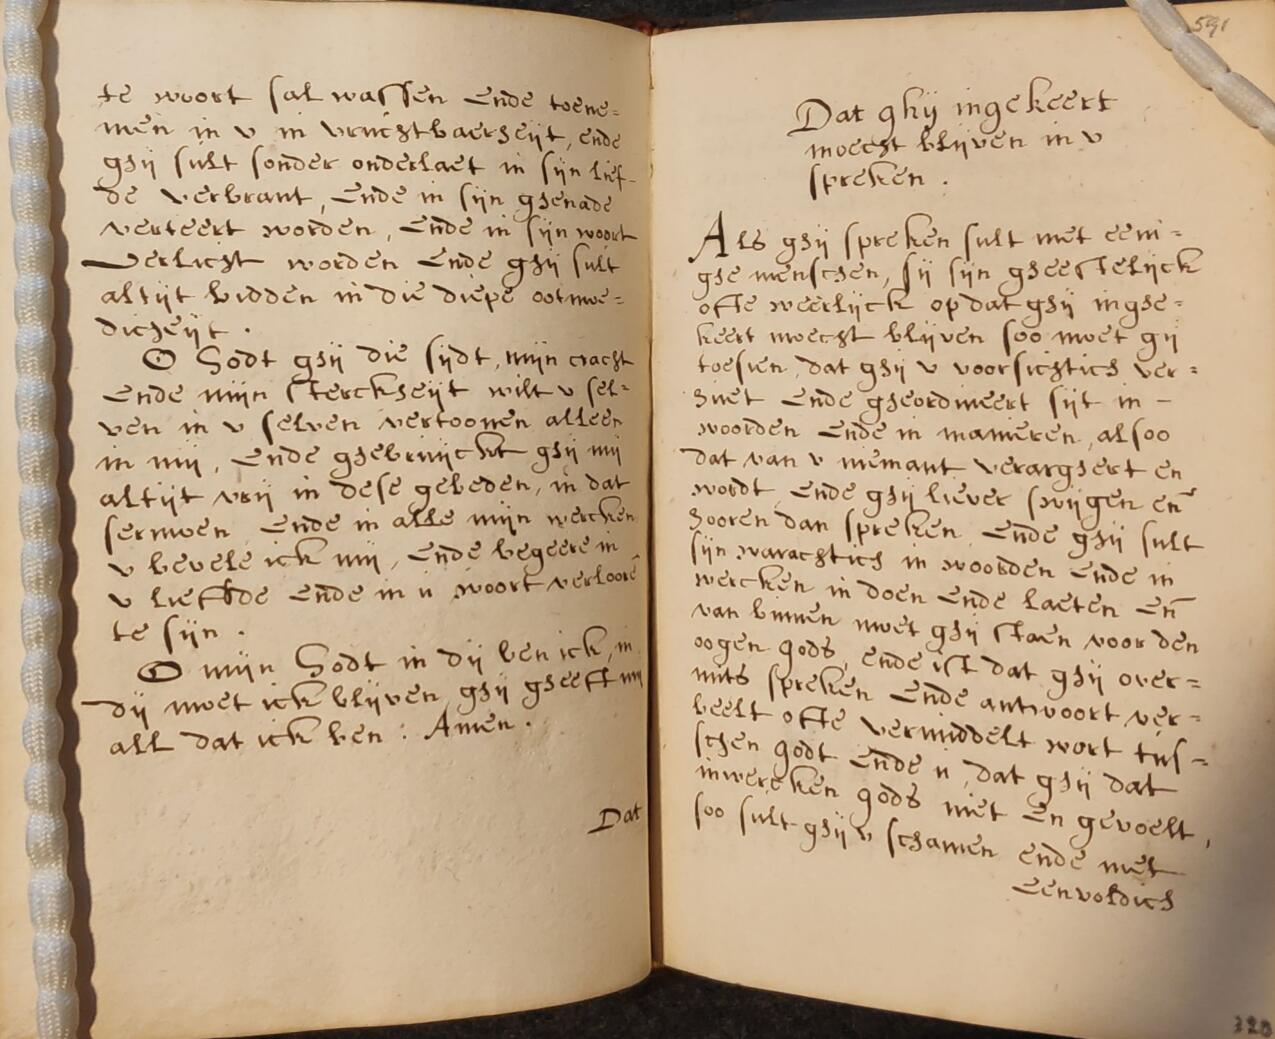 te woort sal wassen ende toene=
men in v in vruchtbaerheijt, ende
ghij sult sonder onderlaet in sijn lief-
de verbrant, ende in sijn ghenade
verteert worden, ende in sijn woort
verlicht worden ende ghij sult
altijt bidden in die diepe ootmoe=
dicheijt.
O Godt ghij die sijdt, mijn cracht
ende mijn sterckheijt wilt v sel=
ven in v selven vertoonen alleen
in mij, ende ghebruijckt ghij mij
altijt vrij in dese gebeden, in dat
sermoen ende in alle mijn wercken
v bevele ick mij, ende begeere in
v liefde ende in u woort verloorē
te sijn.
O mijn Godt in dij ben ick, in
dij moet ick blijven ghij gheeft mij
all dat ick ben: Amen.
Dat
591
Dat ghij ingekeert
moecht blijven in v
spreken.
Als ghij spreken sult met eeni=
ghe menschen, sij sijn gheestelijck
ofte weerlijck op dat ghij inghe=
keert moecht blijven soo moet gij
toesien, dat ghij v voorsichtich ver=
hiet ende gheordineert sijt in -
woorden ende in manieren, alsoo
dat van v niemant verarghert en
wordt, ende ghij liever swijgen eñ
hooren dan spreken, ende ghij sult
sijn warachtich in woorden ende in
wercken in doen ende laeten eñ
van binnen moet ghij staen voor den
oogen gods, ende ist dat ghij over=
mits spreken ende antwoort ver=
beelt ofte vermiddelt wort tus=
schen godt ende u, dat ghij dat
inwercken gods niet en gevoelt,
soo sult ghij v schamen ende met
eenvoldich
320